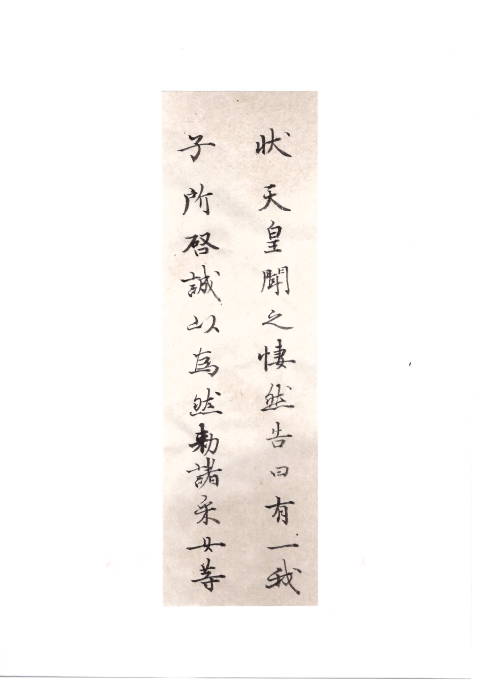 状天皇聞之悽然告曰有一我
子所啓誠以為然勅諸采女等